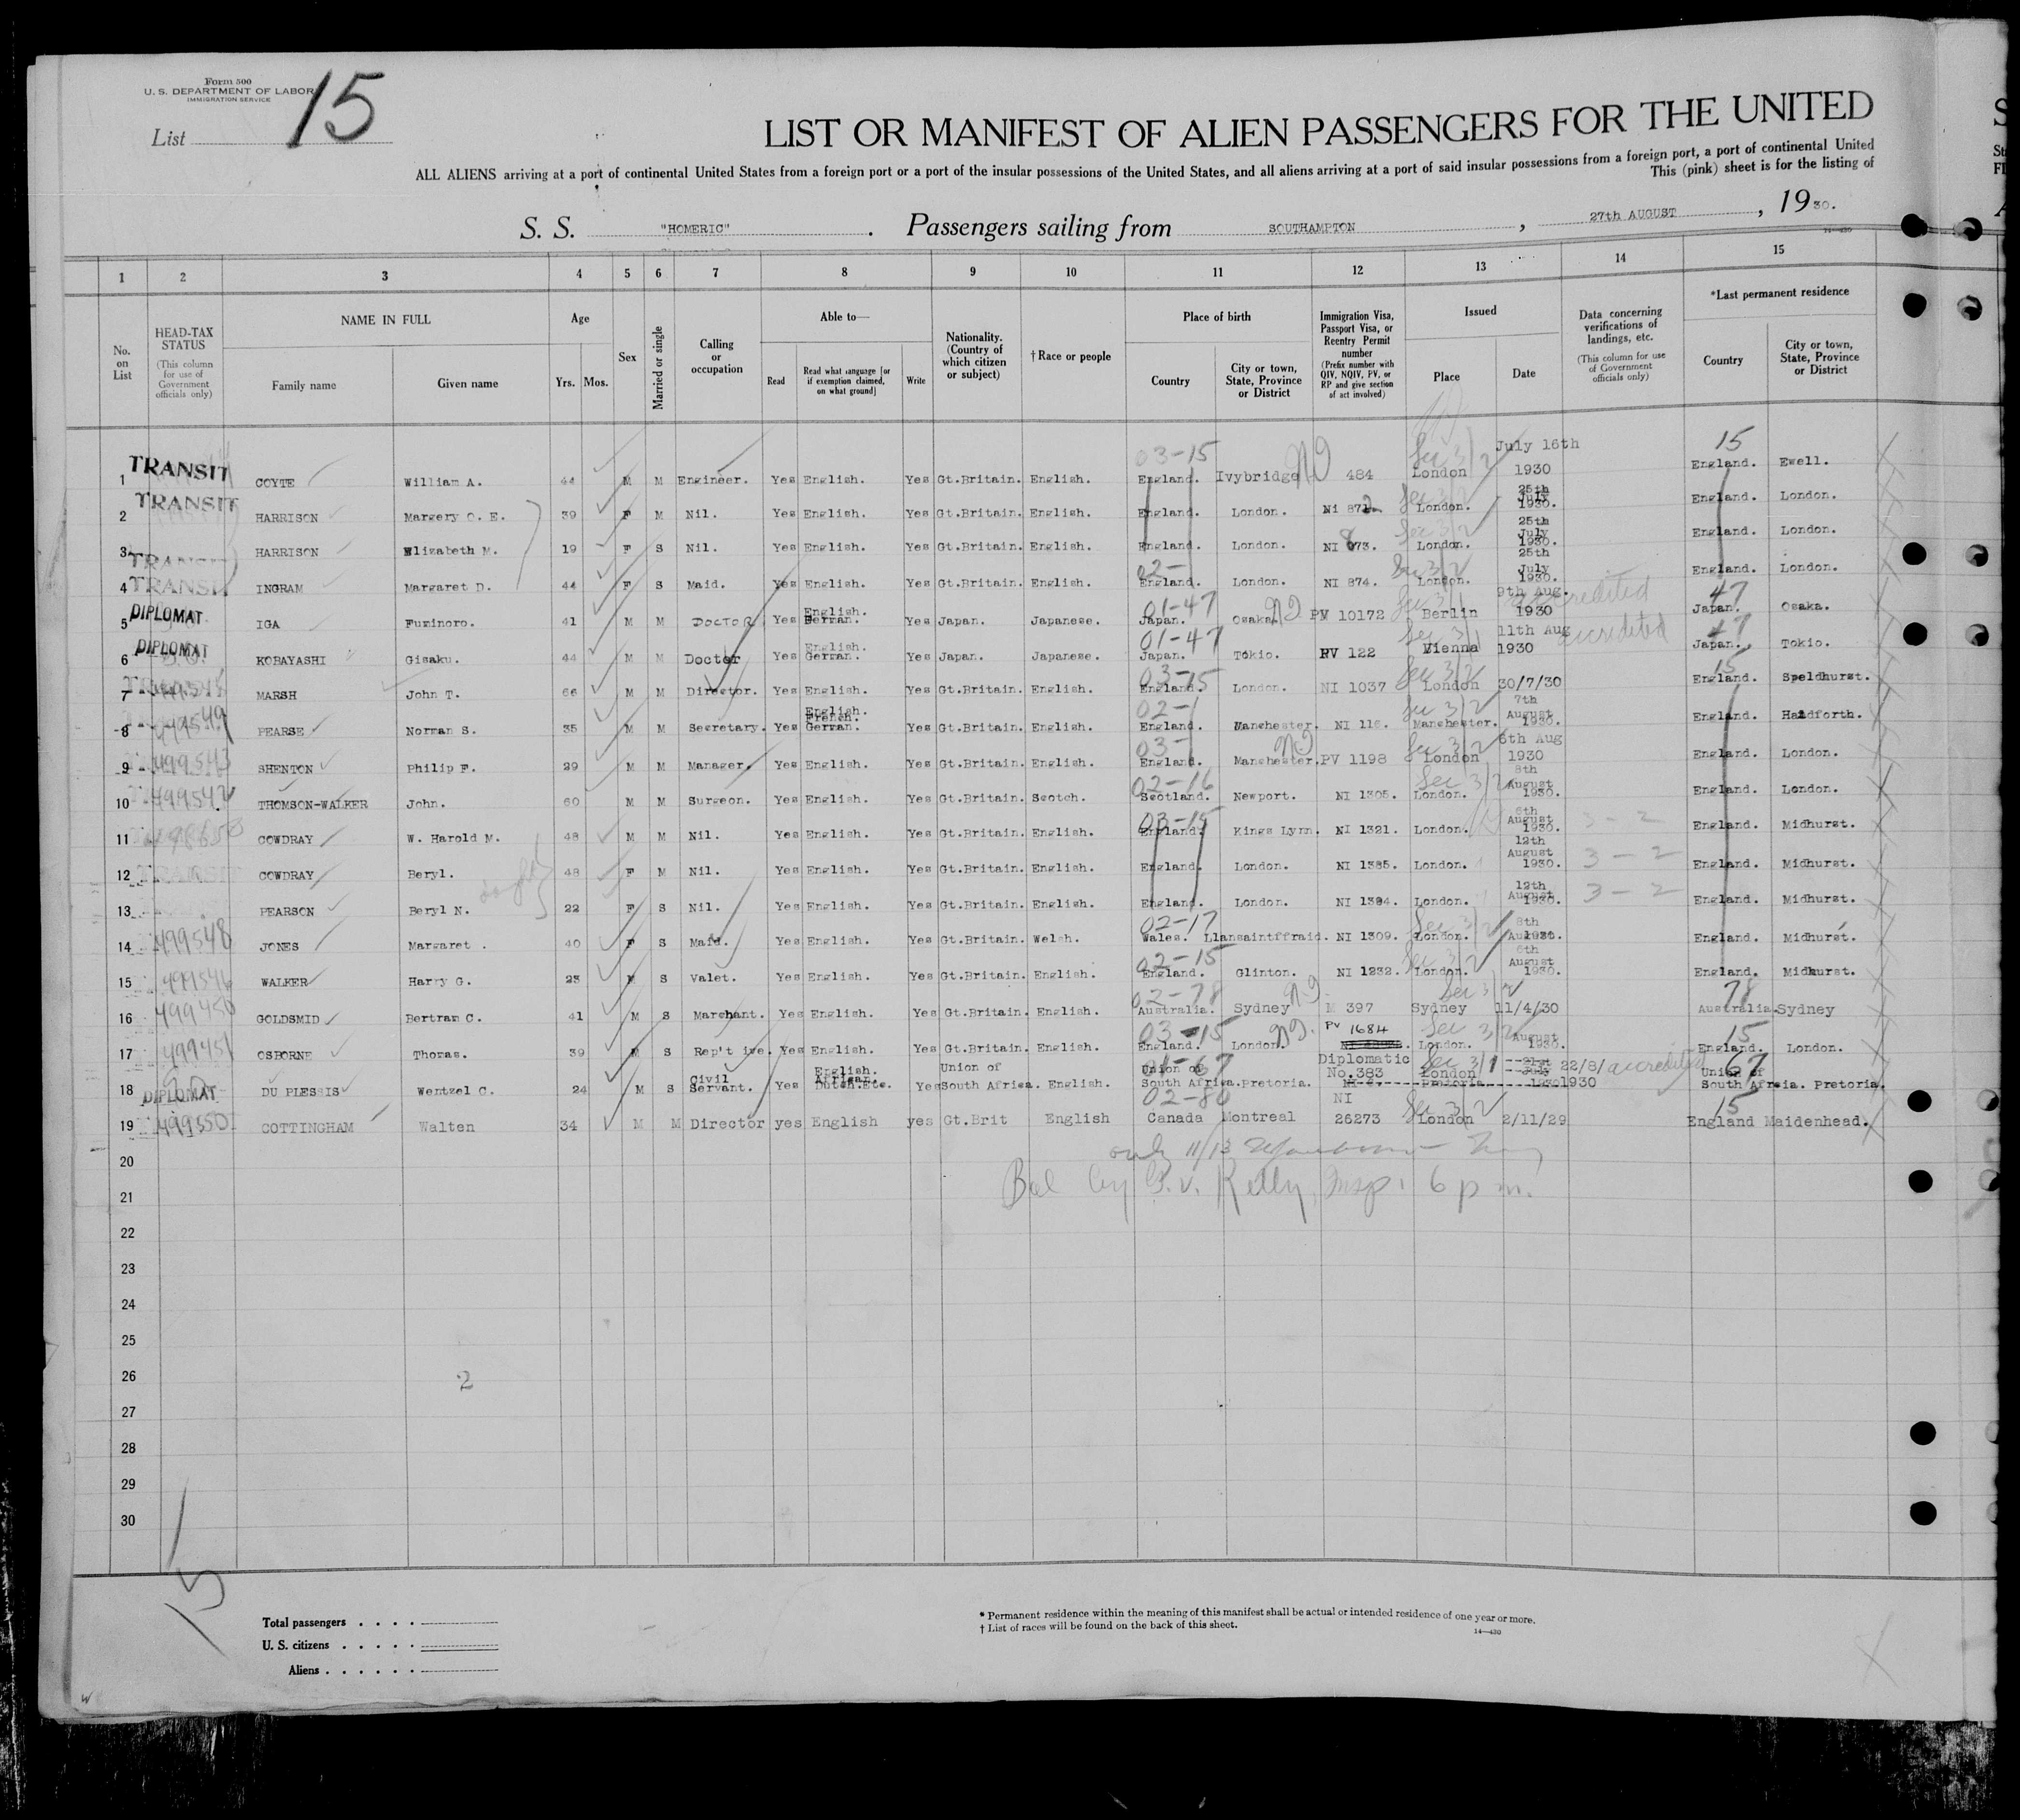 Form 500
U. S. DEPARTMENT OF LABOR
IMMIGRATION SERVICE
List 15
LIST OR MANIFEST OF ALIEN PASSENGERS FOR THE UNITED
ALL ALIENS arriving at a port of continental United States from a foreign port or a port of the insular possessions of the United States, and all aliens arriving at a port of said insular possessions from a foreign port, a port of continental United
This (pink) sheet is for the listing of
S. S. "HOMERIC". Passengers sailing from SOUTHAMPTON, 27th AUGUST, 1930.
1 2 3 4 5 6 7 8 9 10 11 12 13 14 15
No. on List
HEAD-TAX STATUS (This column for use of Government officials only)
NAME IN FULL Family name Given name
Age Yrs. Mos.
Sex
Married or single
Calling or occupation
Able to— Read Read what language [or if exemption claimed, on what ground] Write
Nationality. (Country of which citizen or subject)
† Race or people
Place of birth Country City or town, State, Province or District
Immigration Visa, Passport Visa, or Reentry Permit number (Prefix number with QIV, NQIV, PV, or RP and give section of act involved)
Issued Place Date
Data concerning verifications of landings, etc. (This column for use of Government officials only)
*Last permanent residence Country City or town, State, Province or District
1 TRANSIT COYTE William A. 44 M M Engineer. Yes English. Yes Gt.Britain. English. 03-15 England. Ivybridge 484 Sec 3/2 London July 16th 1930 15 England. Ewell.
2 TRANSIT HARRISON Margery O. E. 39 F M Nil. Yes English. Yes Gt.Britain. English. England. London. NI 872 Sec 3/2 London. 25th July 1930. England. London.
3 TRANSIT HARRISON Elizabeth M. 19 F S Nil. Yes English. Yes Gt.Britain. English. England. London. NI 873. Sec 3/2 London. 25th July 1930. England. London.
4 TRANSIT INGRAM Margaret D. 44 F S Maid. Yes English. Yes Gt.Britain. English. 02- England. London. NI 874. Sec 3/2 London. 25th July 1930. England. London.
5 DIPLOMAT IGA Fuminoro. 41 M M DOCTOR Yes English. German. Yes Japan. Japanese. 01-47 Japan. Osaka. PV 10172 Sec 3/1 Berlin 9th Aug. 1930 accredited 47 Japan. Osaka.
6 DIPLOMAT KOBAYASHI Gisaku. 44 M M Doctor Yes English. German. Yes Japan. Japanese. 01-47 Japan. Tokio. PV 122 Sec 3/1 Vienna 11th Aug 1930 accredited 47 Japan. Tokio.
7 MARSH John T. 66 M M Director. Yes English. Yes Gt.Britain. English. 03-15 England. London. NI 1037 Sec 3/2 London 30/7/30 15 England. Speldhurst.
8 499549 PEARSE Norman S. 35 M M Secretary. Yes English. French. German. Yes Gt.Britain. English. 02- England. Manchester. NI 116. Sec 3/2 Manchester. 7th August 1930. England. Handforth.
9 499543 SHENTON Philip F. 29 M M Manager. Yes English. Yes Gt.Britain. English. 03- England. Manchester. PV 1198 Sec 3/2 London 6th Aug 1930 England. London.
10 499542 THOMSON-WALKER John. 60 M M Surgeon. Yes English. Yes Gt.Britain. Scotch. 02-16 Scotland. Newport. NI 1305. Sec 3/2 London. 8th August 1930. England. London.
11 COWDRAY W. Harold M. 48 M M Nil. Yes English. Yes Gt.Britain. English. 03-15 England. Kings Lynn. NI 1321. London. 6th August 1930. 3-2 England. Midhurst.
12 TRANSIT COWDRAY Beryl. 48 F M Nil. Yes English. Yes Gt.Britain. English. England. London. NI 1385. London. 12th August 1930. 3-2 England. Midhurst.
13 PEARSON Beryl N. 22 F S Nil. Yes English. Yes Gt.Britain. English. England. London. NI 1384. London. 12th August 1930. 3-2 England. Midhurst.
14 499548 JONES Margaret . 40 F S Maid. Yes English. Yes Gt.Britain. Welsh. 02-17 Wales. Llansaintffraid. NI 1309. Sec 3/2 London. 8th August 1930. England. Midhurst.
15 499546 WALKER Harry G. 23 M S Valet. Yes English. Yes Gt.Britain. English. 02-15 England. Glinton. NI 1232. Sec 3/2 London. 6th August 1930. England. Midhurst.
16 499450 GOLDSMID Bertram C. 41 M S Marchant. Yes English. Yes Gt.Britain. English. 02-78 Australia. Sydney M 397 Sec 3/2 Sydney 11/4/30 78 Australia. Sydney
17 499451 OSBORNE Thomas. 39 M S Rep't ive. Yes English. Yes Gt.Britain. English. 03-15 England. London. PV 1684 Sec 3/2 London. August 1930. 15 England. London.
18 DIPLOMAT DU PLESSIS Wentzel C. 24 M S Civil Servant. Yes English. Afrikan. Dutch.Etc. Yes Union of South Africa. English. 01-67 Union of South Africa. Pretoria. Diplomatic No.383 Sec 3/1 London Pretoria. 22/8/ 1930 accredited 67 Union of South Africa. Pretoria.
19 499550 COTTINGHAM Walten 34 M M Director yes English yes Gt.Brit English 02-80 Canada Montreal NI 26273 Sec 3/2 London 2/11/29 15 England Maidenhead.
20
21 Kelly, Insp. 6 p m.
22
23
24
25
26 2
27
28
29
30
15
Total passengers . . . .
U. S. citizens . . . . .
Aliens . . . . . .
* Permanent residence within the meaning of this manifest shall be actual or intended residence of one year or more.
† List of races will be found on the back of this sheet.
14—430
W